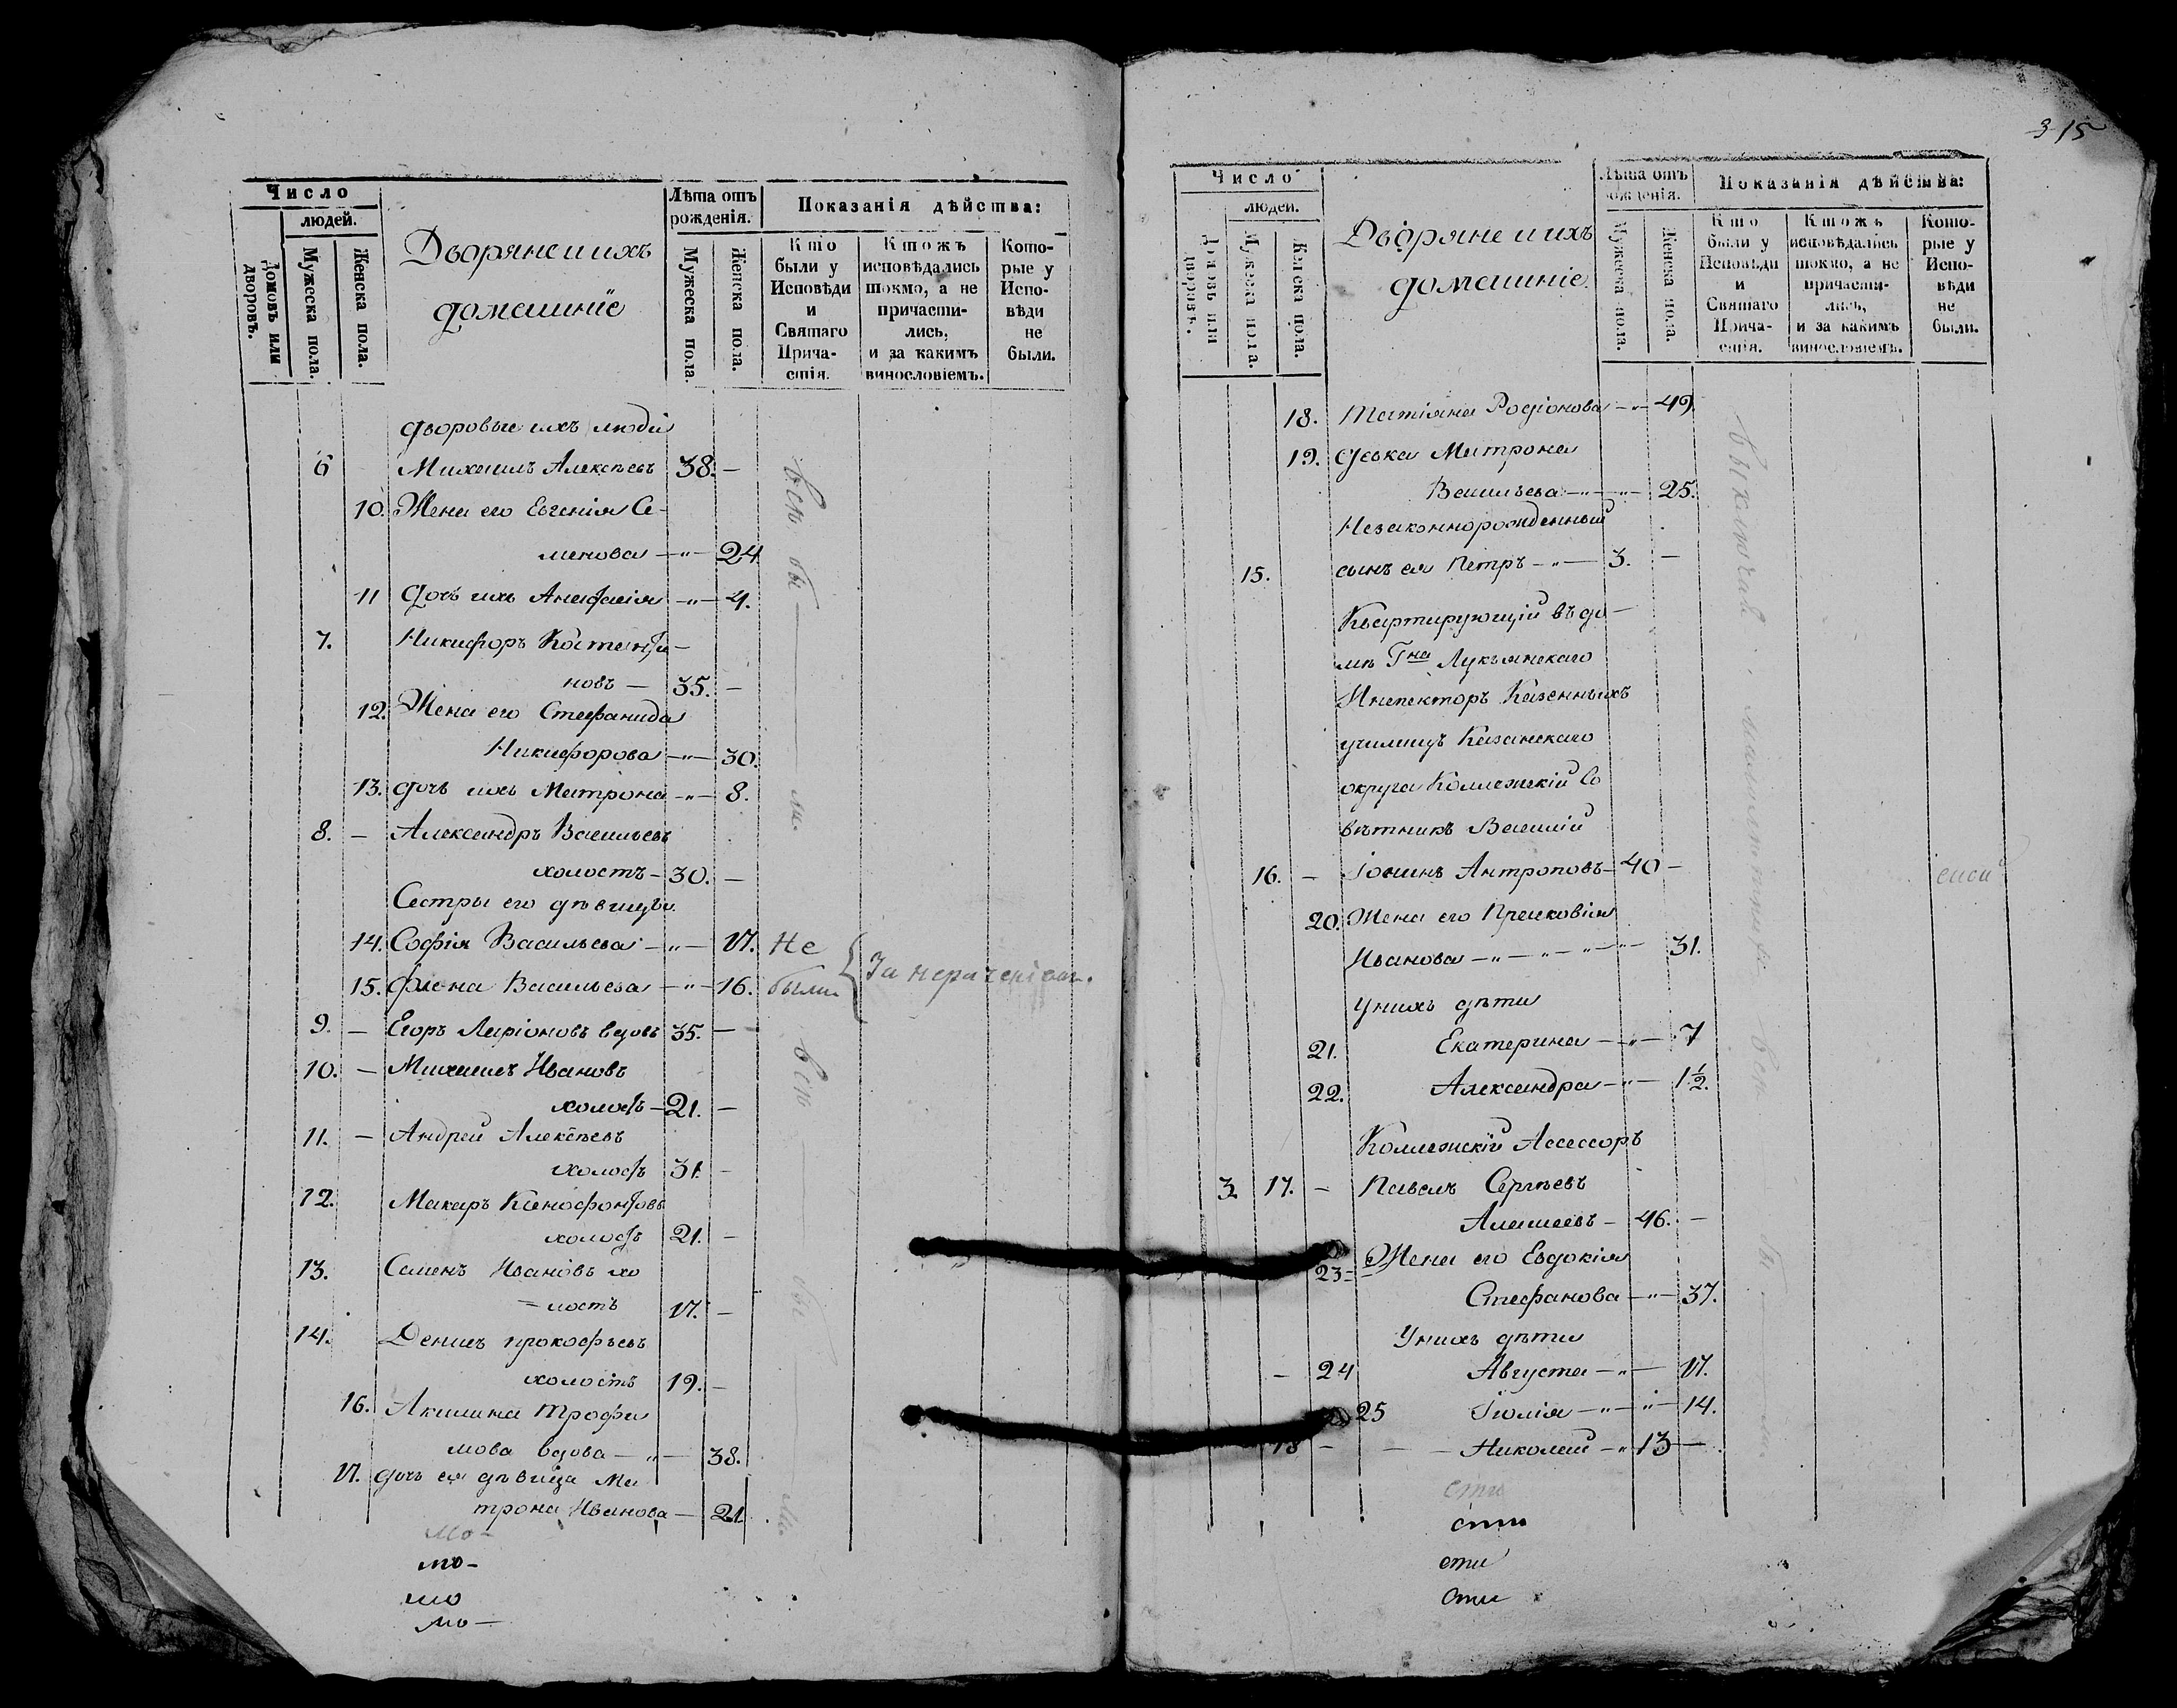 Число
людей.
Домовъ или дворовъ.
Мужеска пола.
Женска пола.
Дворяне и ихъ
домашніе
Лѣта отъ
рожденія.
Мужеска пола.
Женска пола.
Показанія дѣйства:
Кто
были у
Исповѣди
и
Святаго
Прича-
стія.
Ктожъ
исповѣдались
токмо, а не
причасти-
лись,
и за какимъ
винословіемъ.
Кото-
рые у
Испо-
вѣди
не
были.
дворовые ихъ люди
6 Михаилъ Алексѣевъ 38. —
10. Жена его Евгенія Се-
менова — " — 24
11 Дочь ихъ Анафасія — " — 4.
7. Никифоръ Костантi-
новъ — 35. —
12. Жена его Стефанида
Никифорова — " — 30.
13. дочь ихъ Матрона — " — 8.
8. — Александръ Васильевъ
холостъ — 30. —
Сестры его дѣвицы
14. Софія Васильева — " — 17. Не
15. Фіена Васильева — " — 16. были За нераченіемъ.
9. — Егоръ Ларіоновъ вдовъ 35. —
10. — Михаилъ Ивановъ
холостъ — 21. —
11. — Андрей Алексѣевъ
холостъ 31. —
12. Макаръ Ксенофонтовъ
холостъ 21. —
13. Семенъ Ивановъ хо
= лостъ 17. —
14. Денисъ Прокофьевъ
холостъ 19. —
16. Акилина Трофи
мова вдова — " — 38.
17. дочь ея дѣвица Ма
трона Иванова — 21.
всѣ бы — ли.
всѣ бы — ли.
мо —
мо —
мо
мо —
3 15
Число
людей.
Домовъ или дворовъ.
Мужеска пола.
Женска пола.
Дворяне и ихъ
домашніе
Лѣта отъ
рожденія.
Мужеска пола.
Женска пола.
Показанія дѣйства:
Кто
были у
Исповѣди
и
Святаго
Прича-
стія.
Ктожъ
исповѣдались
токмо, а не
причасти-
лись,
и за какимъ
винословіемъ.
Кото-
рые у
Испо-
вѣди
не
были.
18. Татіяна Родіонова — " — 49.
19. Дѣвка Матрона
Васильева — " — " — 25.
Незаконнорожденный
15. сынъ ея Петръ — " — 3. —
Квартирующій въ до —
мѣ Гна Лукьянскаго
Инспекторъ Казенныхъ
училищъ Казанскаго
округа Коллежскій Со
вѣтникъ Василій
16. — Іонинъ Антроповъ — 40 —
20. Жена его Прасковія
Иванова — " — " — " — " 31.
У нихъ дѣти
21. Екатерина — " — 7
22. Александра — " — 1 1/2.
Коллежскій Ассессоръ
3. 17. — Павелъ Сергѣевъ
Алашеевъ — 46. —
23 = Жена его Евдокія
Стефанова — " — 37.
У нихъ дѣти
— 24 Августа — " — 17.
25 Іюлія — " — " — 14.
18 — — — Николай — " 13 —
 сти
сти
сти
сти